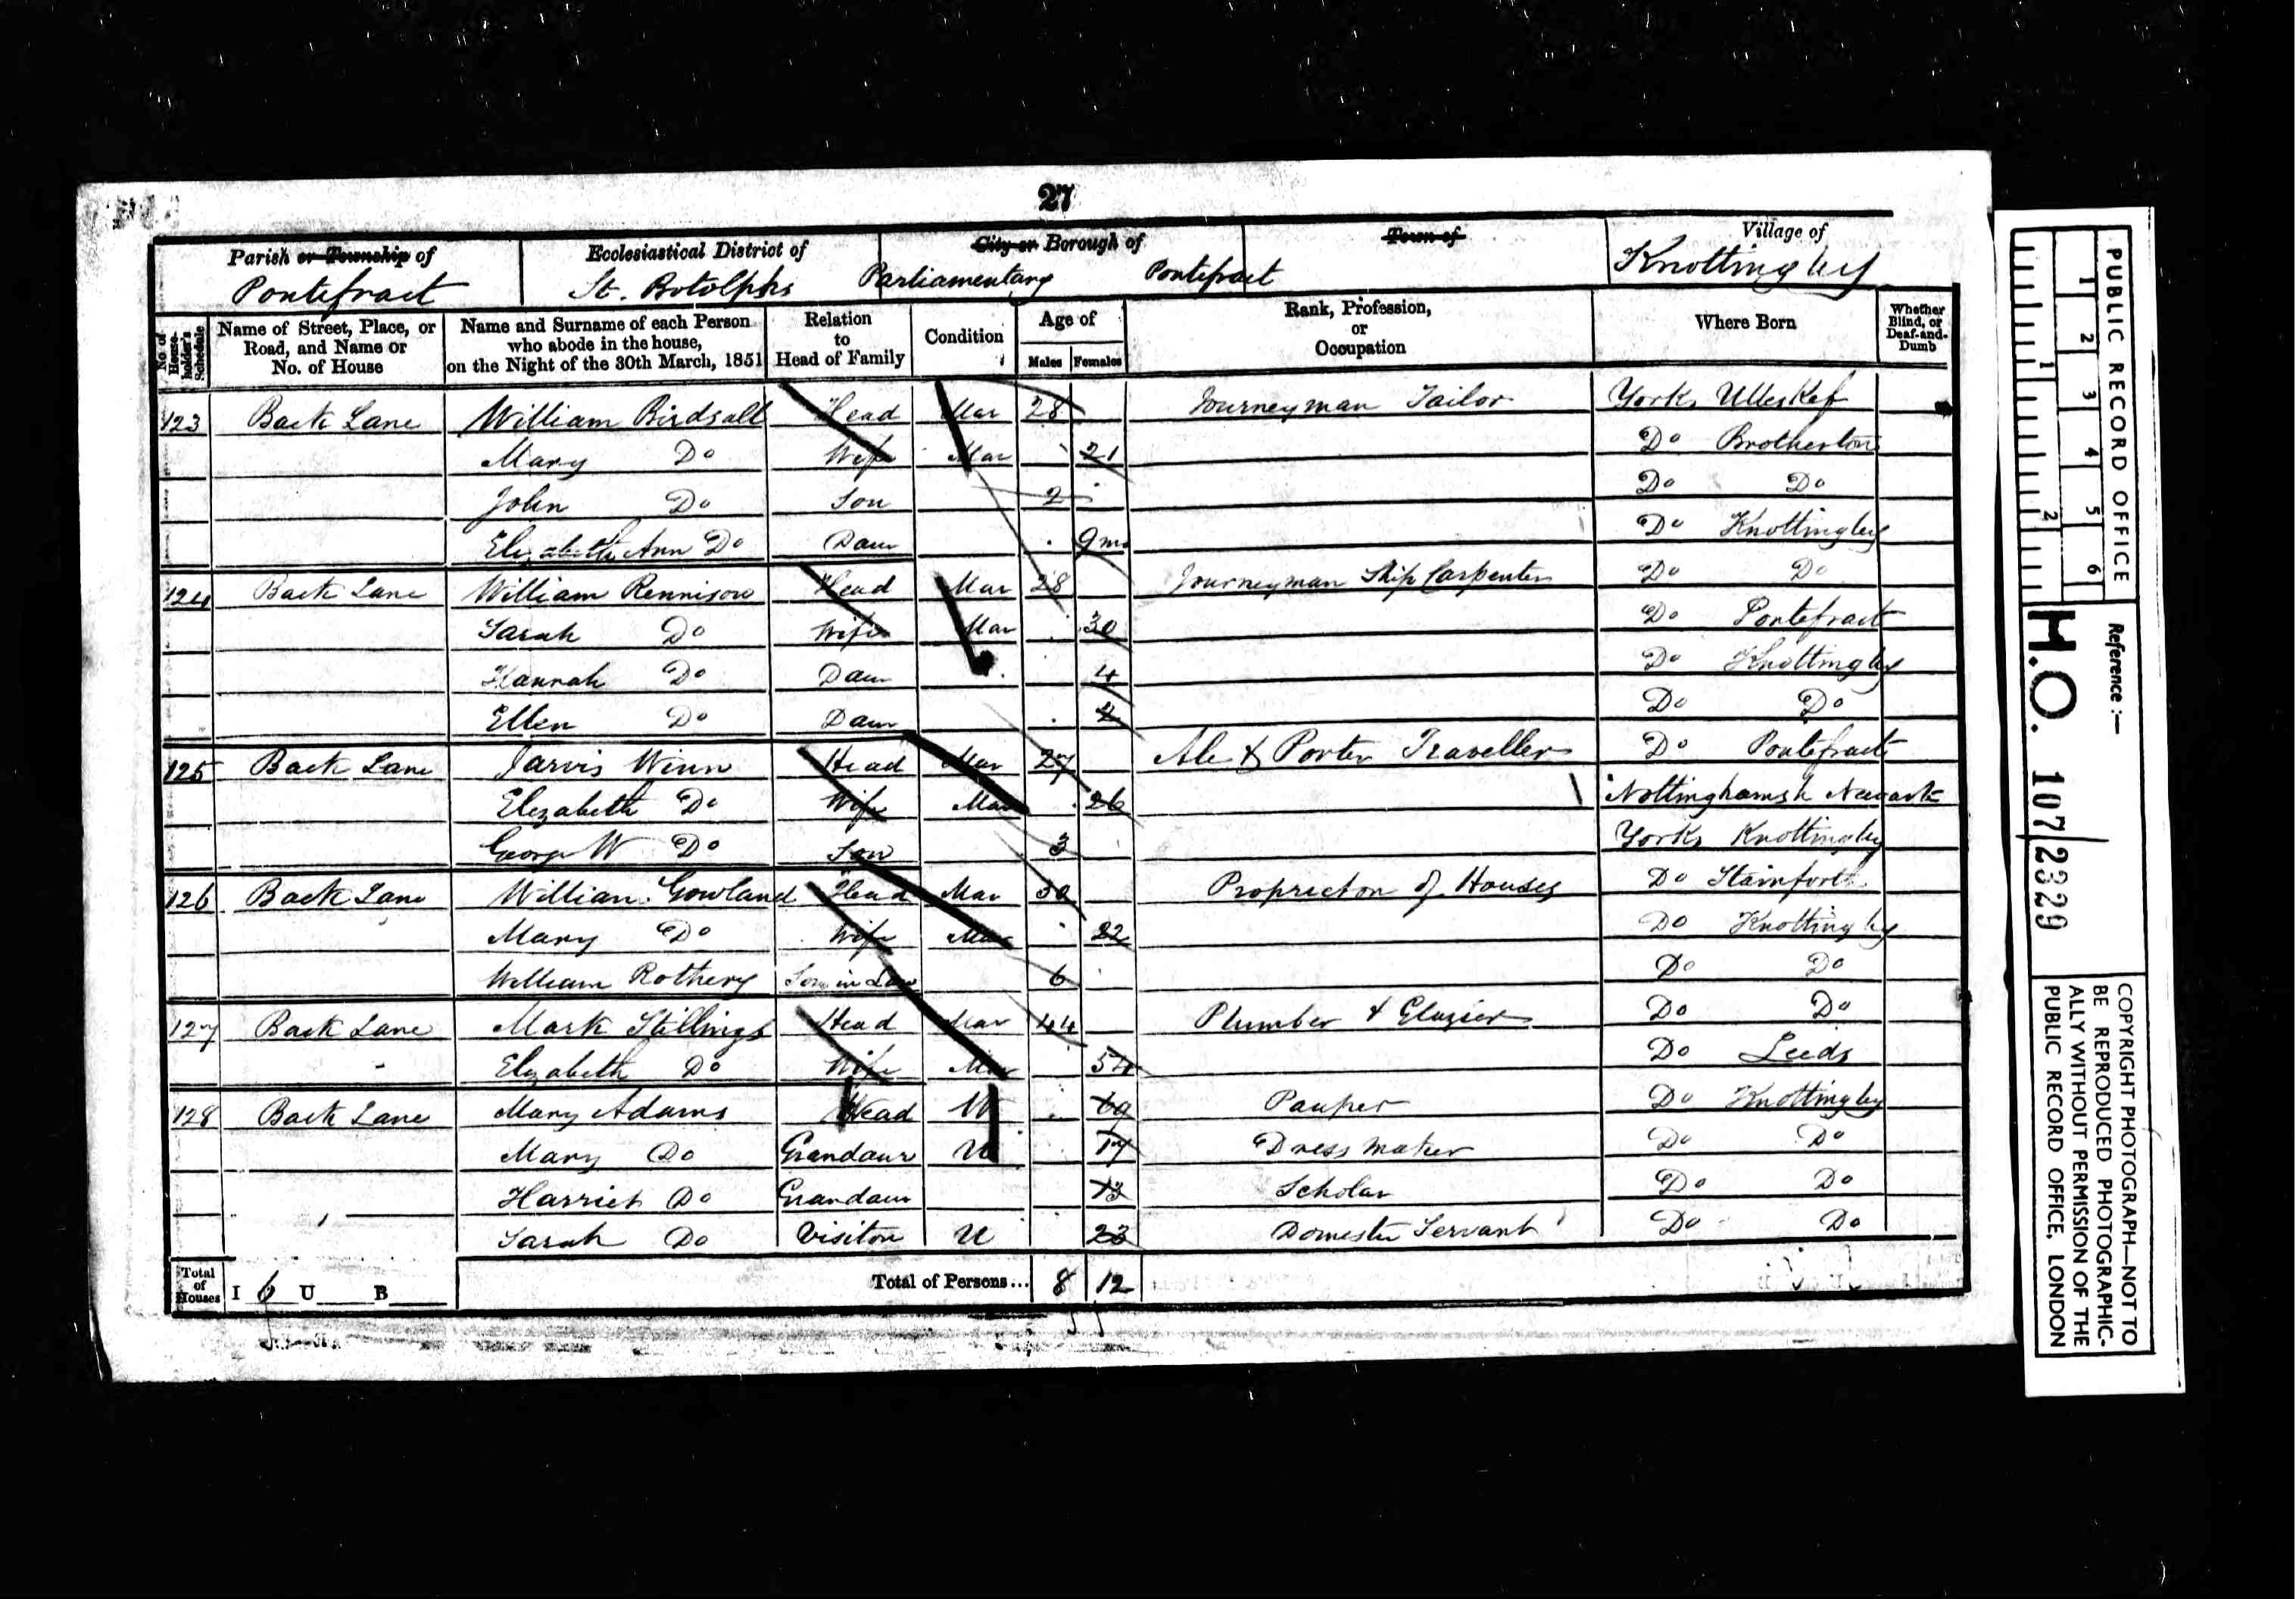 27
Parish or Township of Ecclesiastical District of City or Borough of Town of Village of
Pontefract St. Botolphs Parliamentary Pontefract Knottingley
No. of House-holder's Schedule Name of Street, Place, or Road, and Name or No. of House Name and Surname of each Person who abode in the house, on the Night of the 30th March, 1851 Relation to Head of Family Condition Age of Males Females Rank, Profession, or Occupation Where Born Whether Blind, or Deaf-and-Dumb
123 Back Lane William Birdsall Head Mar 28 Journeyman Tailor Yorks Ulleskef
Mary Do Wife Mar 21 Do Brotherton
John Do Son 2 Do Do
Elizabeth Ann Do Daur 9mo Do Knottingley
124 Back Lane William Rennison Head Mar 28 Journeyman Ship Carpenter Do Do
Sarah Do Wife Mar 30 Do Pontefract
Hannah Do Daur 4 Do Knottingley
Ellen Do Daur 2 Do Do
125 Back Lane Jarvis Winn Head Mar 27 Ale & Porter Traveller Do Pontefract
Elizabeth Do Wife Mar 26 Nottinghamsh Newark
George W Do Son 3 Yorks Knottingley
126 Back Lane William Gowland Head Mar 30 Proprietor of Houses Do Stainforth
Mary Do Wife Mar 22 Do Knottingley
William Rothery Son in Law 6 Do Do
127 Back Lane Mark Stillings Head Mar 44 Plumber & Glazier Do Do
Elizabeth Do Wife Mar 54 Do Leeds
128 Back Lane Mary Adams Head W 69 Pauper Do Knottingley
Mary Do Grandaur U 17 Dress Maker Do Do
Harriet Do Grandaur 13 Scholar Do Do
Sarah Do Visitor U 23 Domestic Servant Do Do
Total of Houses I 6 U B Total of Persons... 8 12
PUBLIC RECORD OFFICE
1 2 3 4 5 6
1 2
Reference :-
H.O. 107/2329
COPYRIGHT PHOTOGRAPH—NOT TO
BE REPRODUCED PHOTOGRAPHIC-
ALLY WITHOUT PERMISSION OF THE
PUBLIC RECORD OFFICE, LONDON